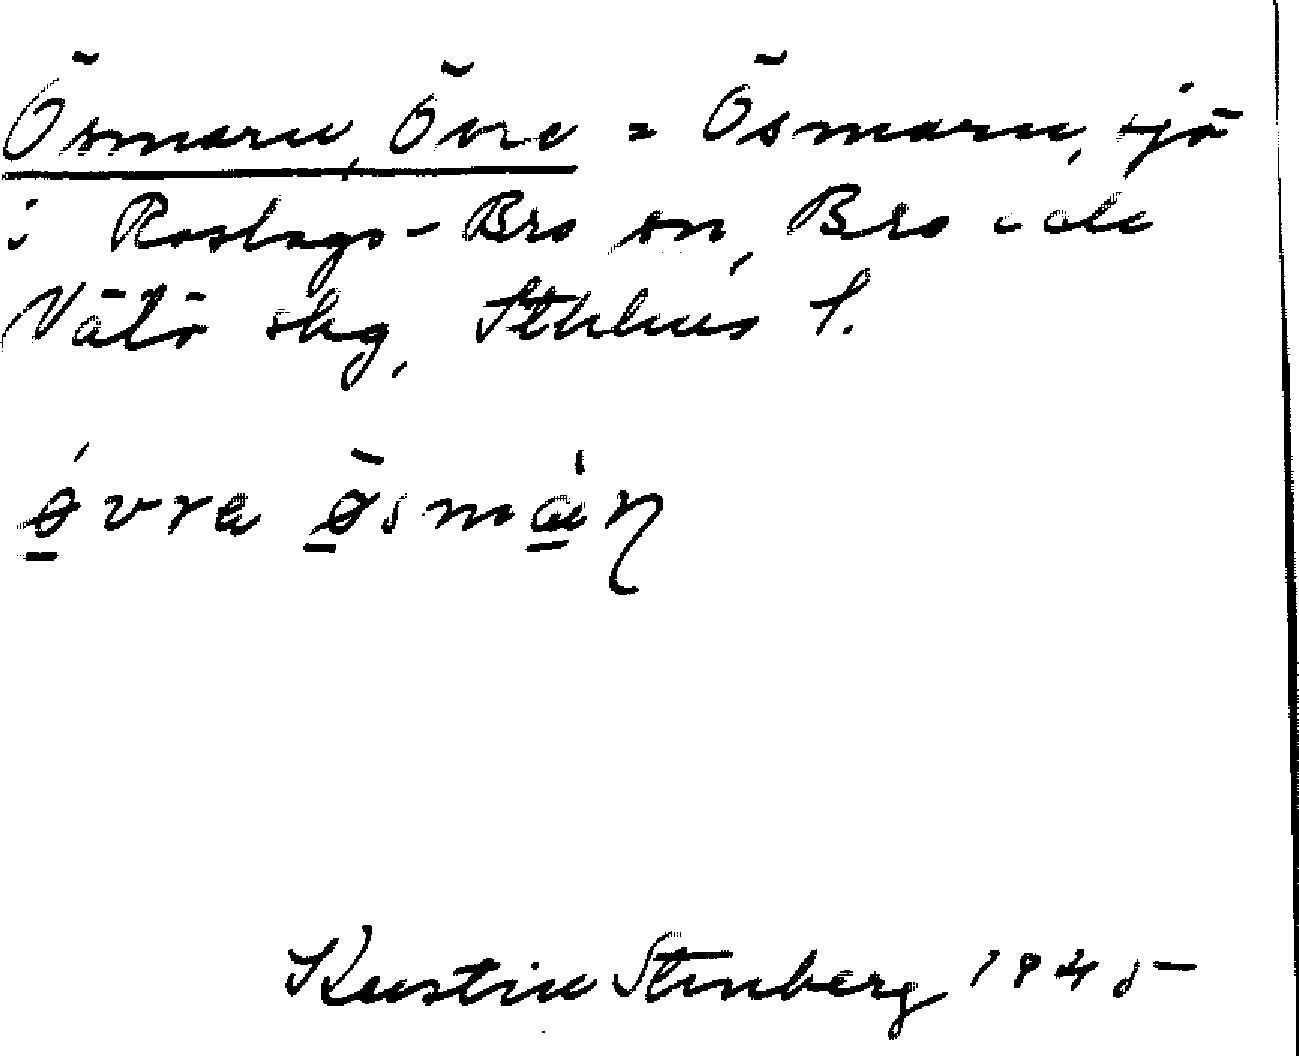 Ösmaren, Övre = Ösmaren, sjö
i Roslags-Bro sn, Bro och
Vätö skg, Sthlms l.
ǿ̱vra ø̱̀smá̱ɳ
Kerstin Stenberg 1945